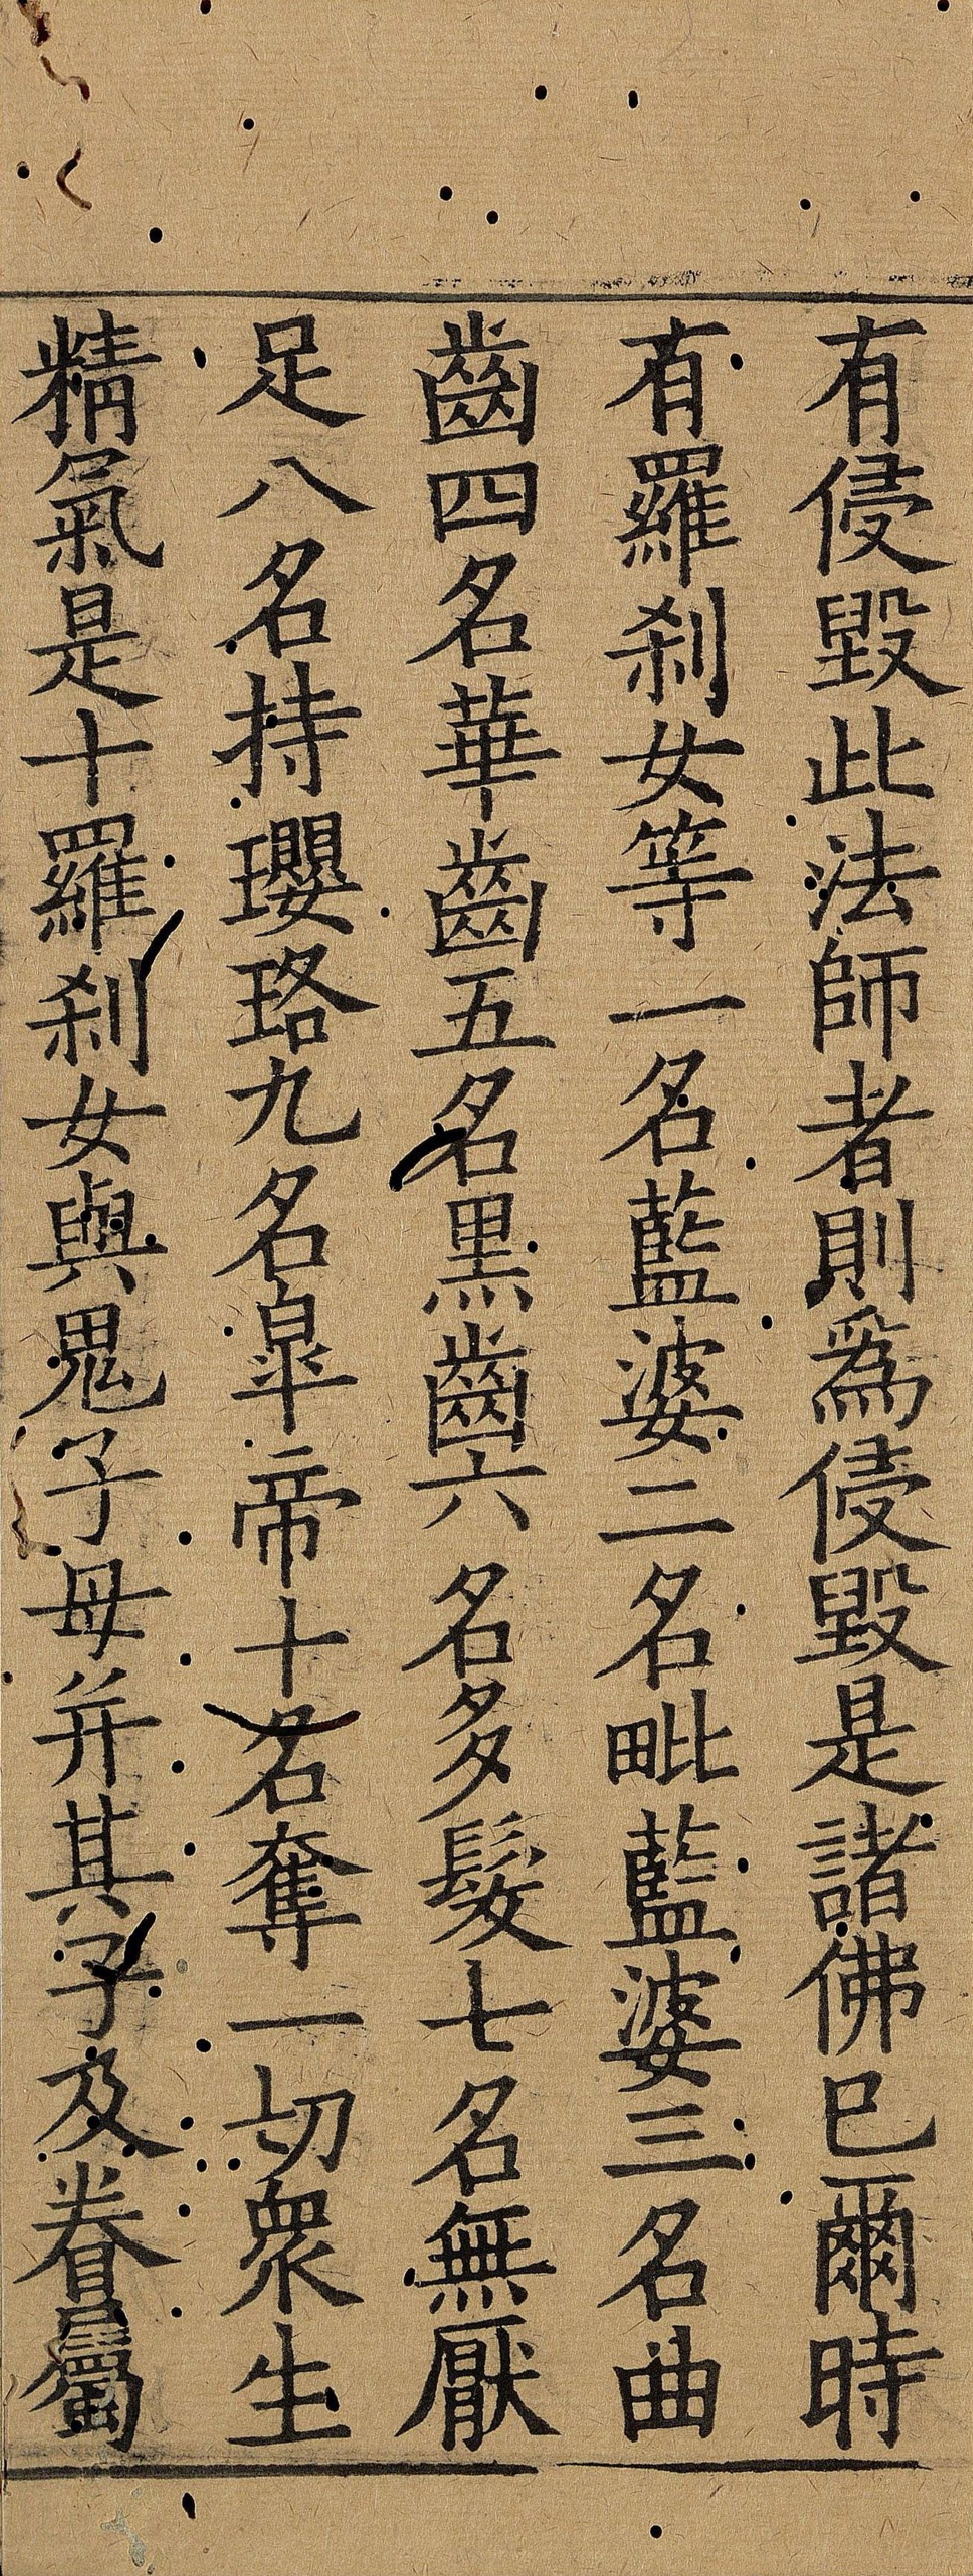 有侵毀此法師者則爲侵毀是諸佛已爾時
有羅剎女等一名藍婆二名毗藍婆三名曲
齒四名華齒五名黑齒六名多髮七名無厭
足八名持瓔珞九名睪帝十名奪一切衆生
精氣是十羅剎女與鬼子母并其子及眷屬